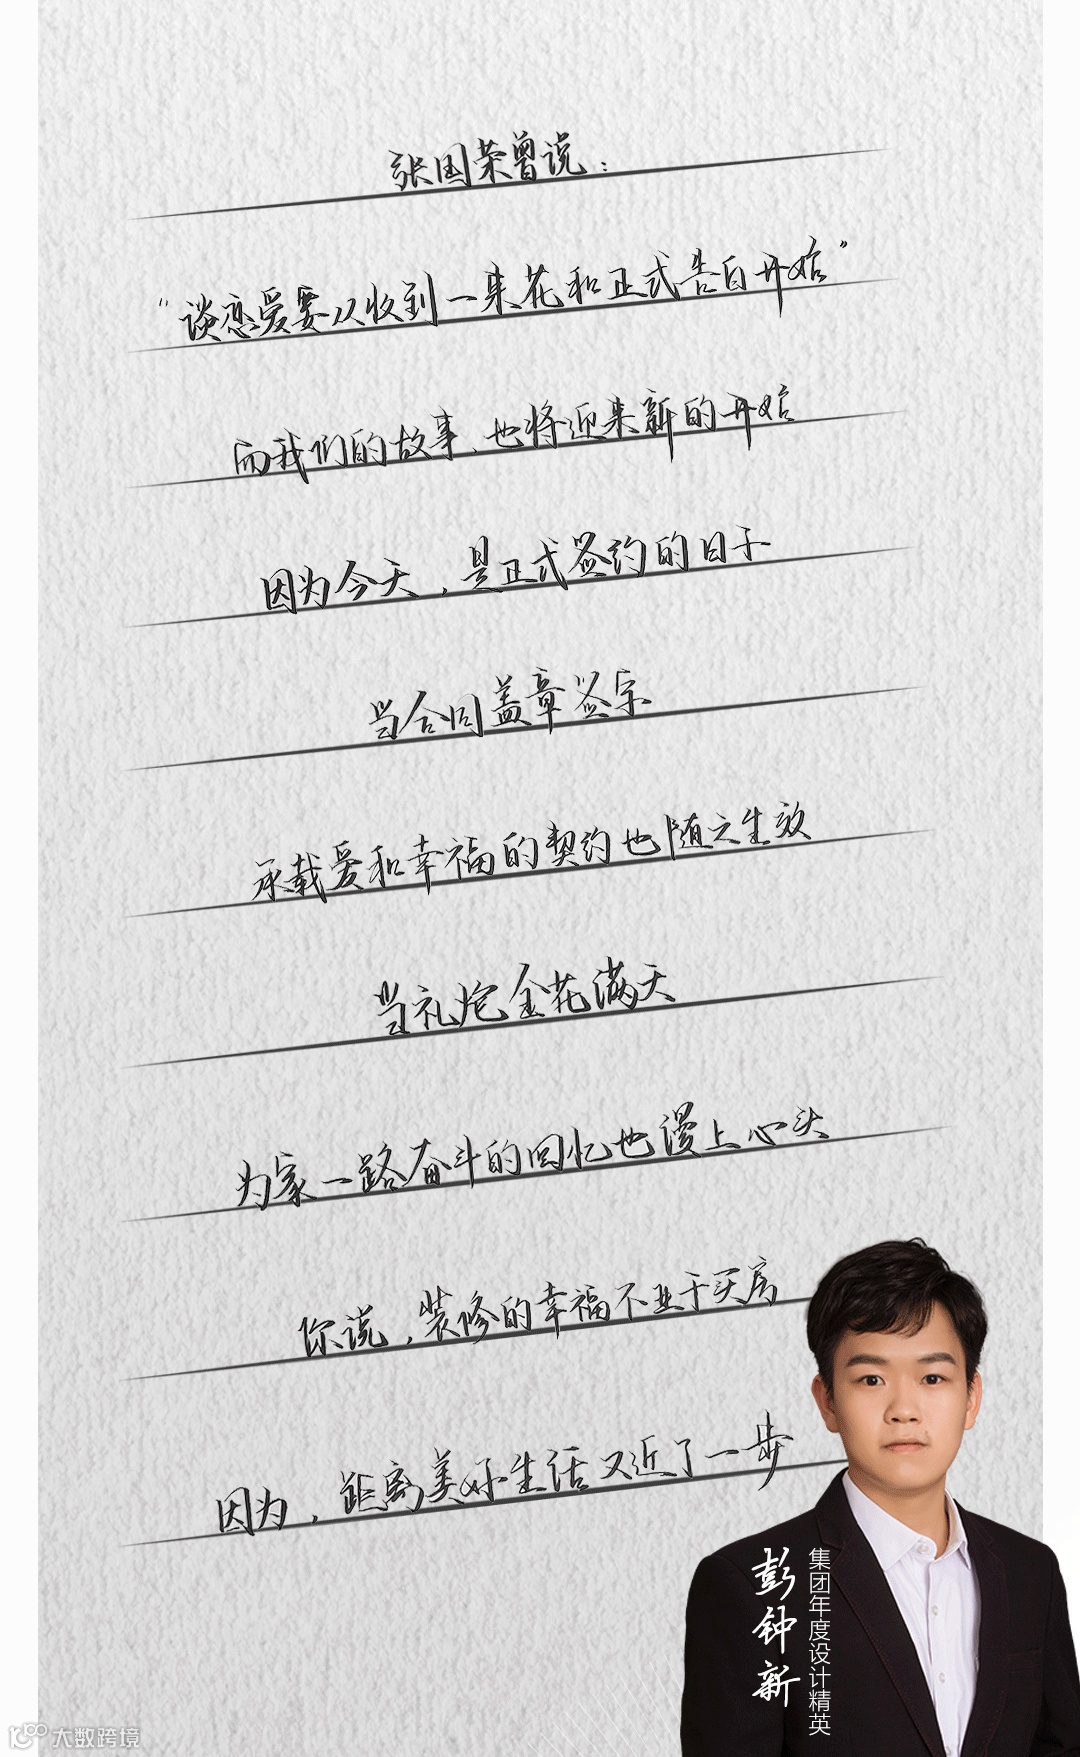 张国荣曾说：
“谈恋爱要从收到一束花和正式告白开始”
而我们的故事、也将迎来新的开始
因为今天，是正式签约的日子
当合同盖章签字
承载爱和幸福的契约也随之生效
当礼炮金花满天
为家一路奋斗的回忆也漫上心头
你说，装修的幸福不亚于买房
因为，距离美好生活又近了一步
集团年度设计精英
彭钟新
大数跨境